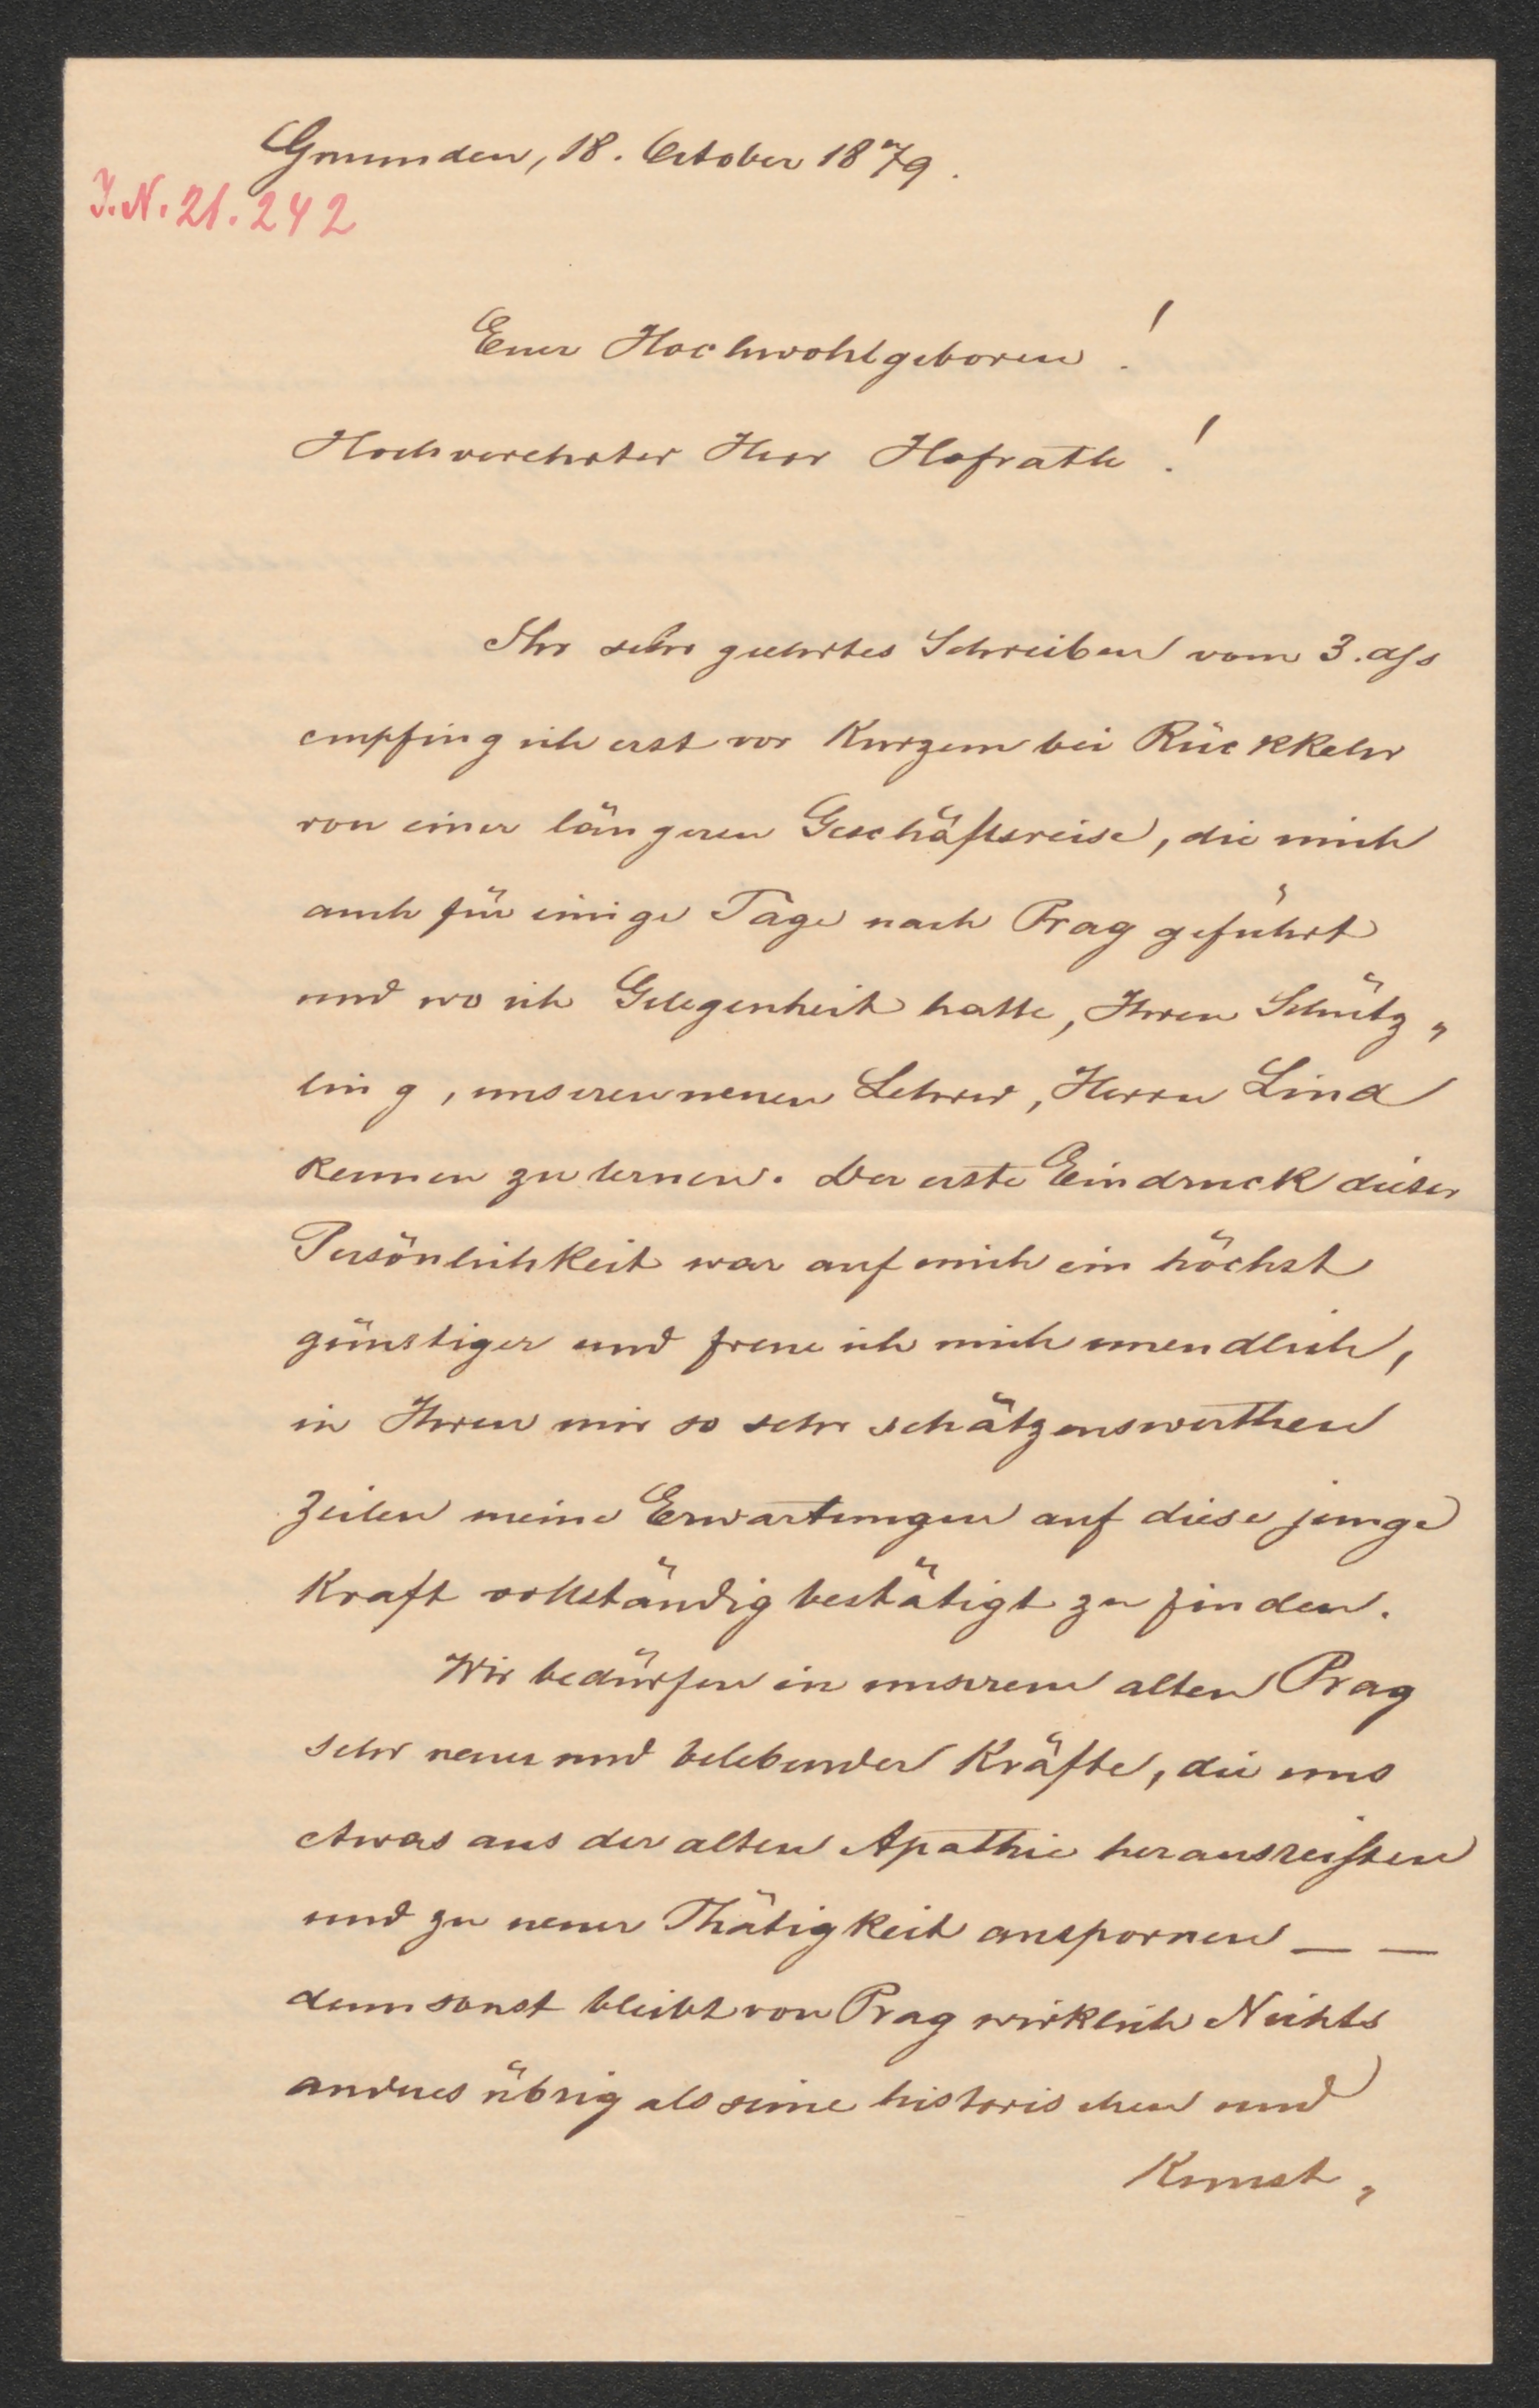 Gmunden, 18. October 1879.
J.N. 21.242
Euer Hochwohlgeboren!
Hochverehrter Herr Hofrath!
Ihr sehr geehrtes Schreiben vom 3.
empfing ich erst vor Kurzem bei Rückkehr
von einer längeren Geschäftsreise, die mich
auch für einige Tage nach Prag geführt
und wo ich Gelegenheit hatte, Ihren Schütz„
ling, unseren neuen Lehrer, Herrn Lind
kennen zu lernen. Der erste Eindruck dieser
Persönlichkeit war auf mich ein höchst
günstiger und freue ich mich unendlich,
in Ihren mir so sehr schätzenswerthen
Zeilen meine Erwartungen auf diese junge
Kraft vollständig bestätigt zu finden.
Wir bedürfen in unserem alten Prag
sehr neuer und belebender Kräfte, die uns
etwas aus der alten Apathie herausreißen
und zu neuer Thätigkeit anspornen — —
denn sonst bleibt von Prag wirklich Nichts
anderes übrig als seine historischen und
Kunst„